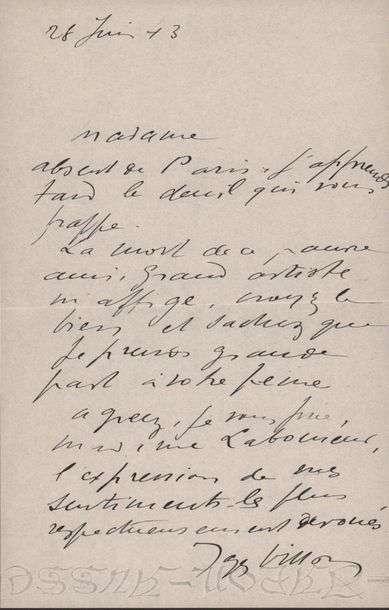 28 Juin 43
Madame
absent de Paris, j'apprends
tard le deuil qui vous
frappe.
La mort de ce pauvre
ami, grand artiste
m'afflige, croyez le
bien et sachez que
je prends grande
part à votre peine
agréez, je vous prie,
madame Laboureur,
l'expression de mes
sentiments les plus
respectueusement dévoués
Jqs Villon